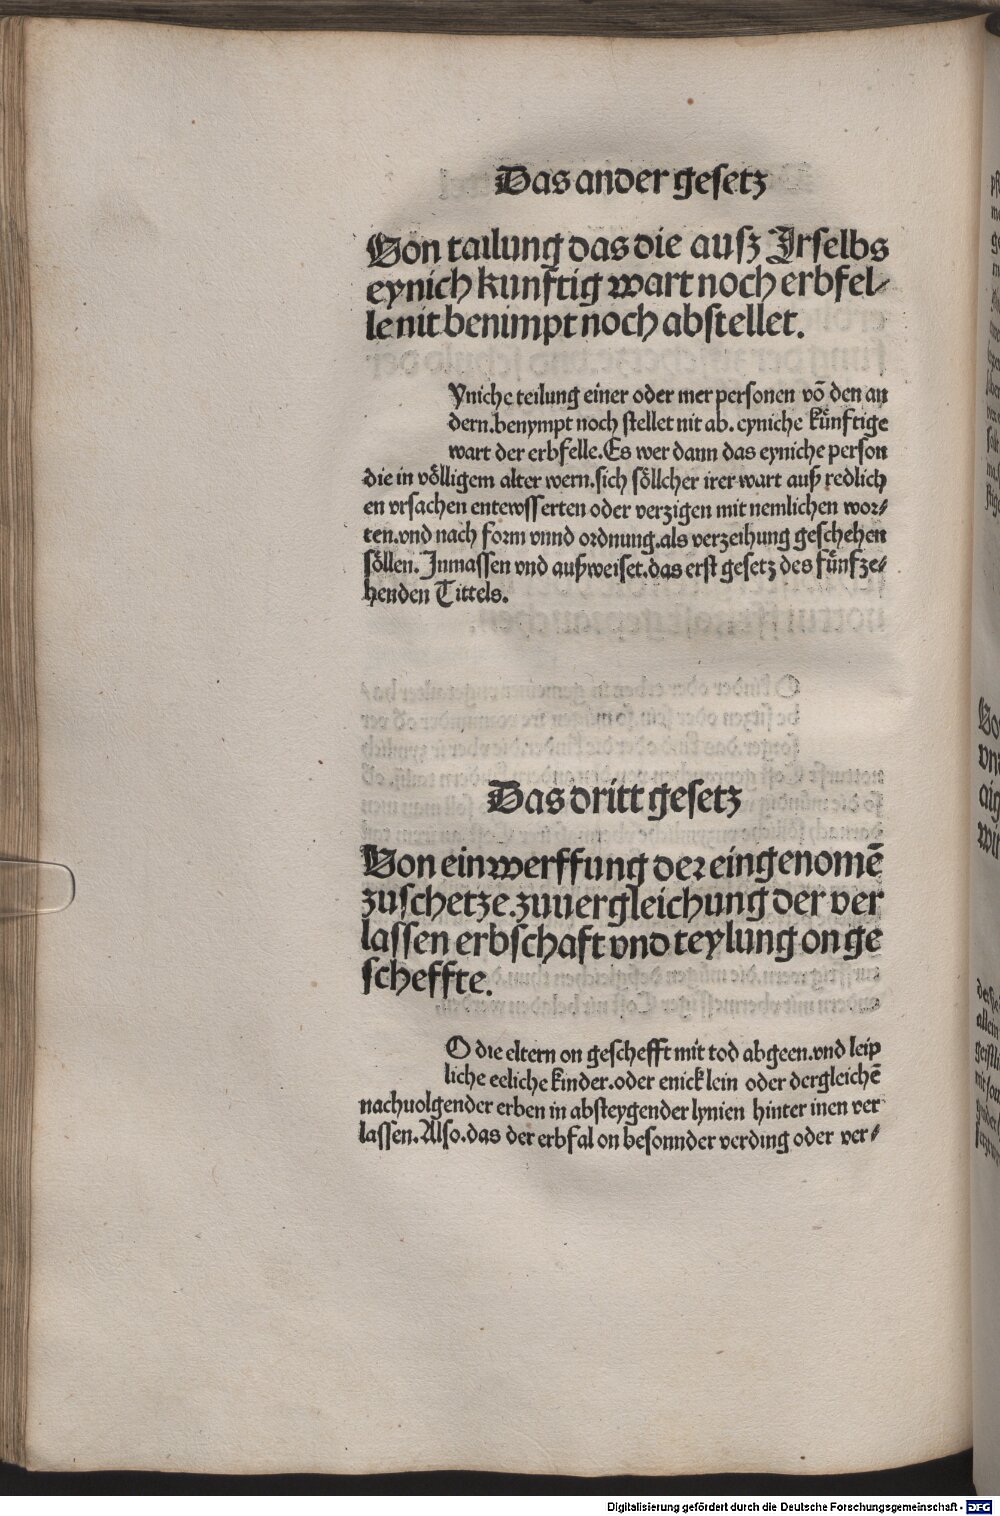 Das ander gesetz
Von tailung das die ausz Irselbs
eynich kunftig wart noch erbfel⸗
le nit benimpt noch abstellet.
Yniche teilung einer oder mer personen vō den an
dern. benympt noch stellet nit ab. eyniche kuͤnftige
wart der erbfelle. Es wer dann das eyniche person
die in voͤlligem alter wern. sich soͤllcher irer wart auß redlich
en vrsachen entewsserten oder verzigen mit nemlichen wor⸗
ten. vnd nach form vnnd ordnung. als verzeihung geschehen
soͤllen. Inmassen vnd außweiset. das erst gesetz des fuͤnfze⸗
henden Tittels.
Das dritt gesetz
Von einwerffung der eingenomē
zuschetze. zuuergleichung der ver
lassen erbschaft vnd teylung on ge
scheffte.
O die eltern on geschefft mit tod abgeen. vnd leip
liche eeliche kinder. oder enicklein oder dergleichē
nachuolgender erben in absteygender lynien hinter inen ver
lassen. Also. das der erbfal on besonnder verding oder ver⸗
Digitalisierung gefördert durch die Deutsche Forschungsgemeinschaft - DFG